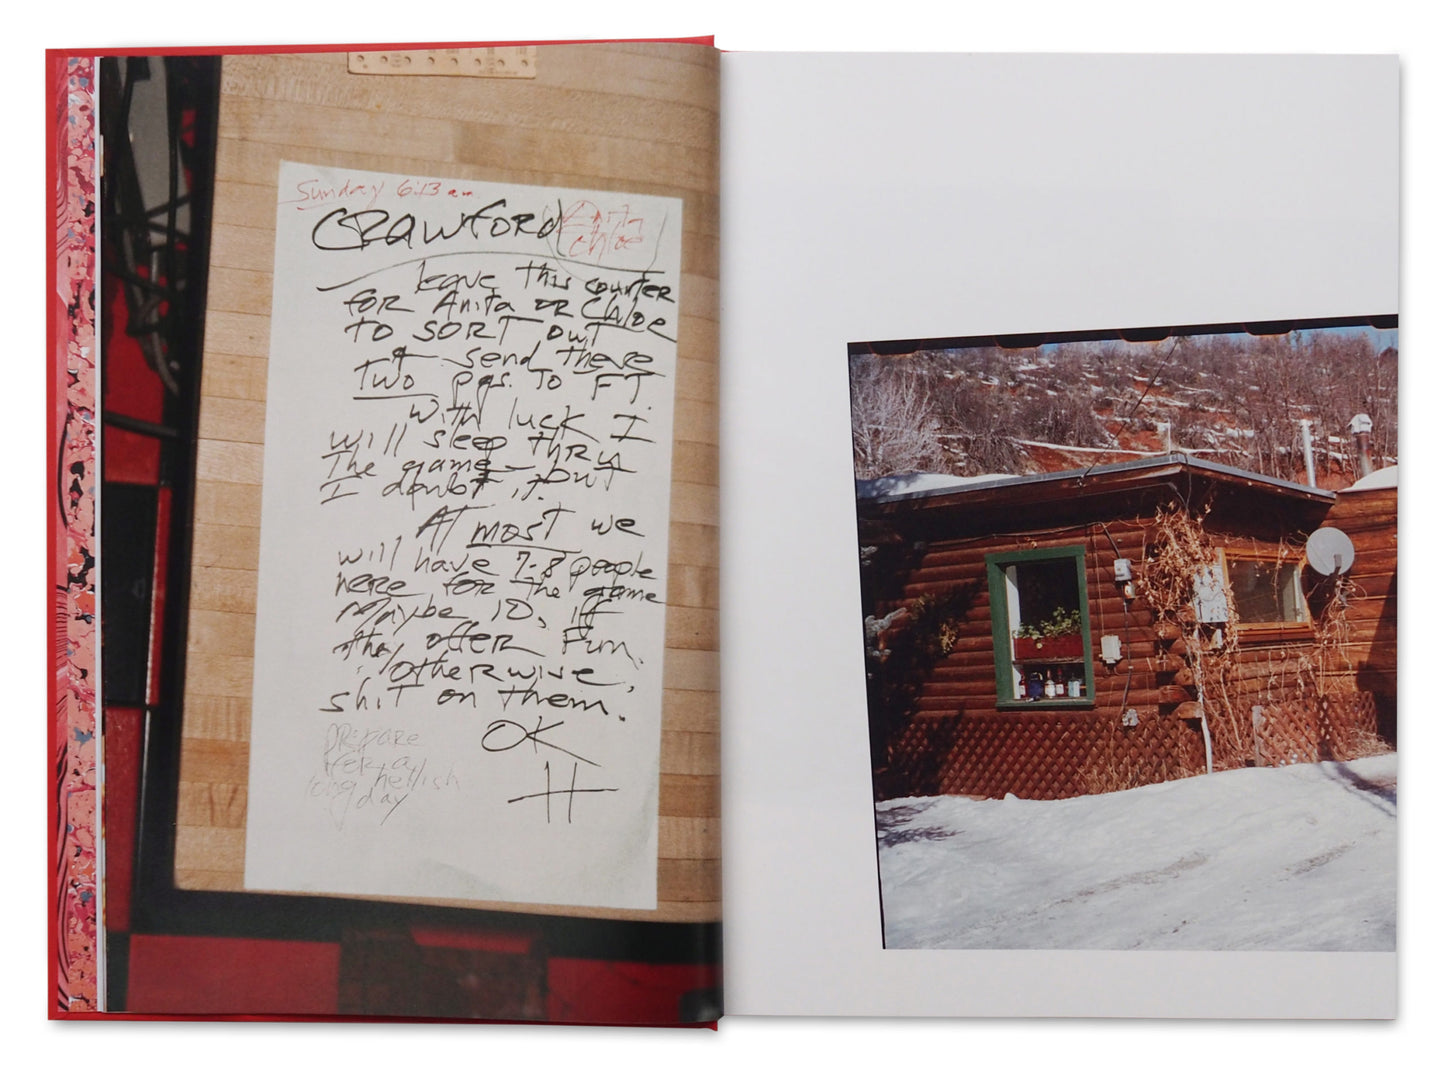 Sunday 6:13 am
CRAWFORD
Anita
Chloe
leave this counter
FOR Anita OR Chloe
TO SORT OUT
& send these
TWO pgs. TO FT.
With luck I
will sleep thru
The game - but
I doubt it.
At most we
will have 7-8 people
here for the game
Maybe 10, IF
they offer Fun.
Otherwise,
shit on them.
OK
H
prepare
for a
long hellish
day